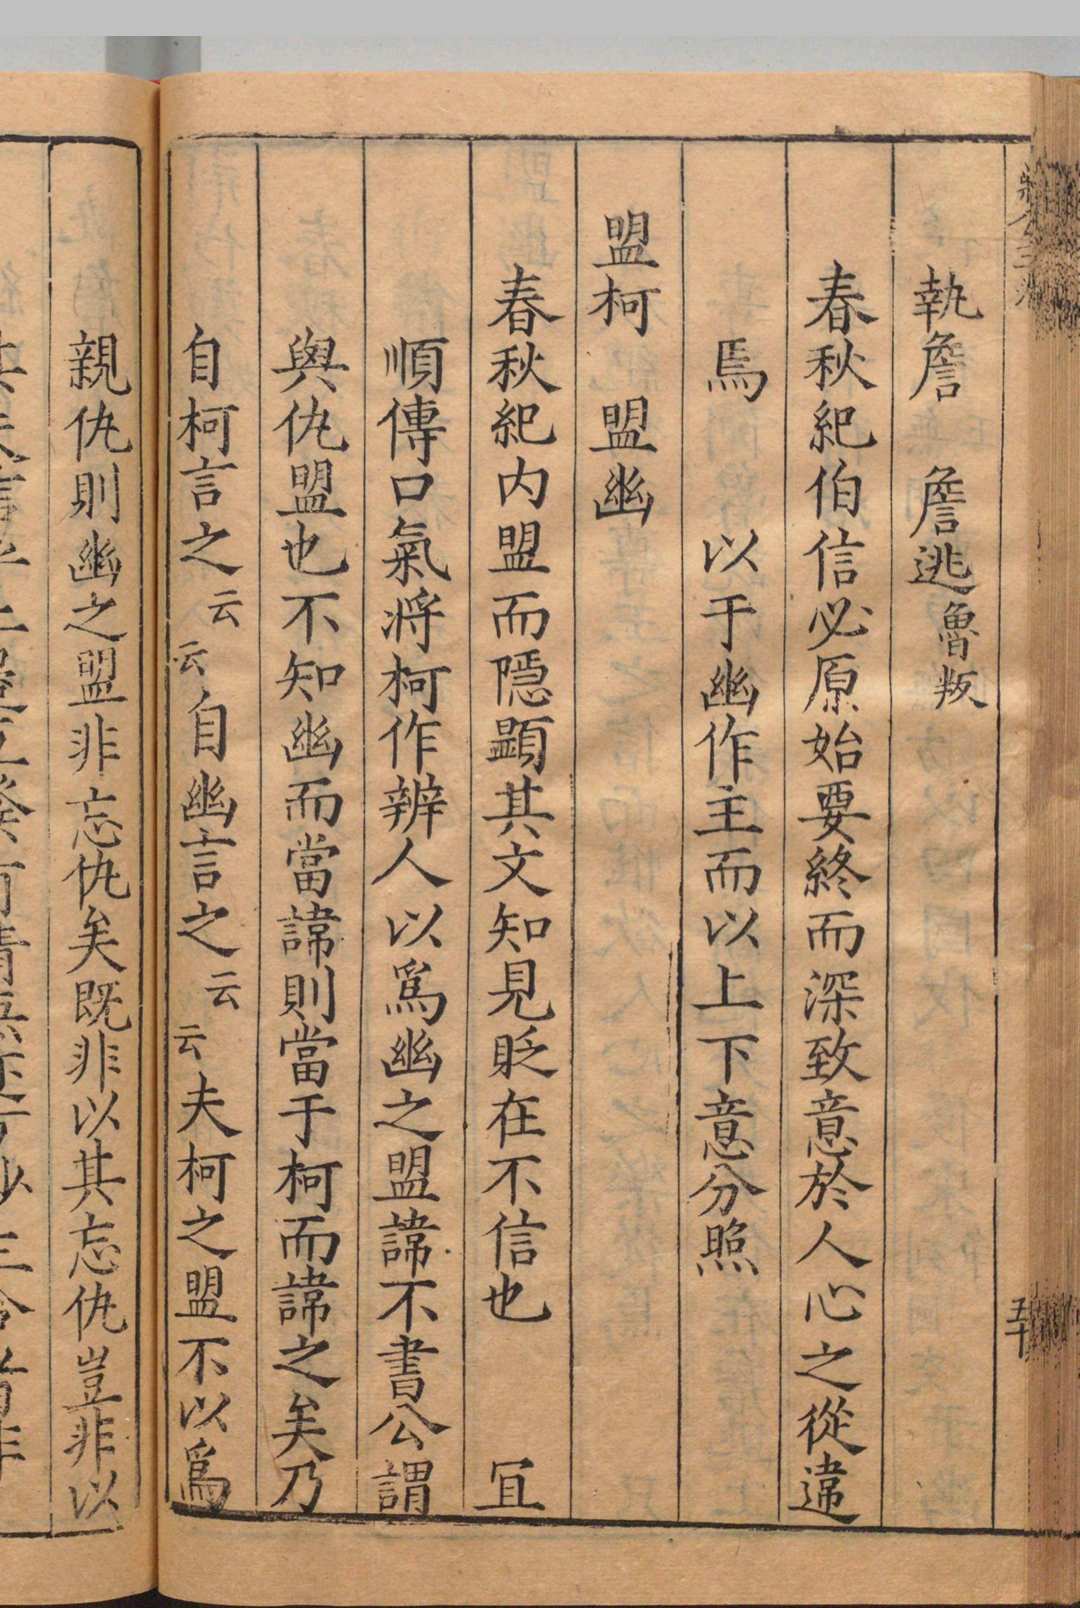 執詹　詹逃魯叛
春秋紀伯信必原始要終而深致意於人心之從違
焉　　以于幽作主而以上下意分照
盟柯　盟幽
春秋紀内盟而隱顯其文知見貶在不信也　　宜
順傳口氣將柯作辨人以爲幽之盟諱不書公謂
與仇盟也不知幽而當諱則當于柯而諱之矣乃
自柯言之云云自幽言之云云夫柯之盟不以爲
親仇則幽之盟非忘仇矣既非以其忘仇豈非以
五十